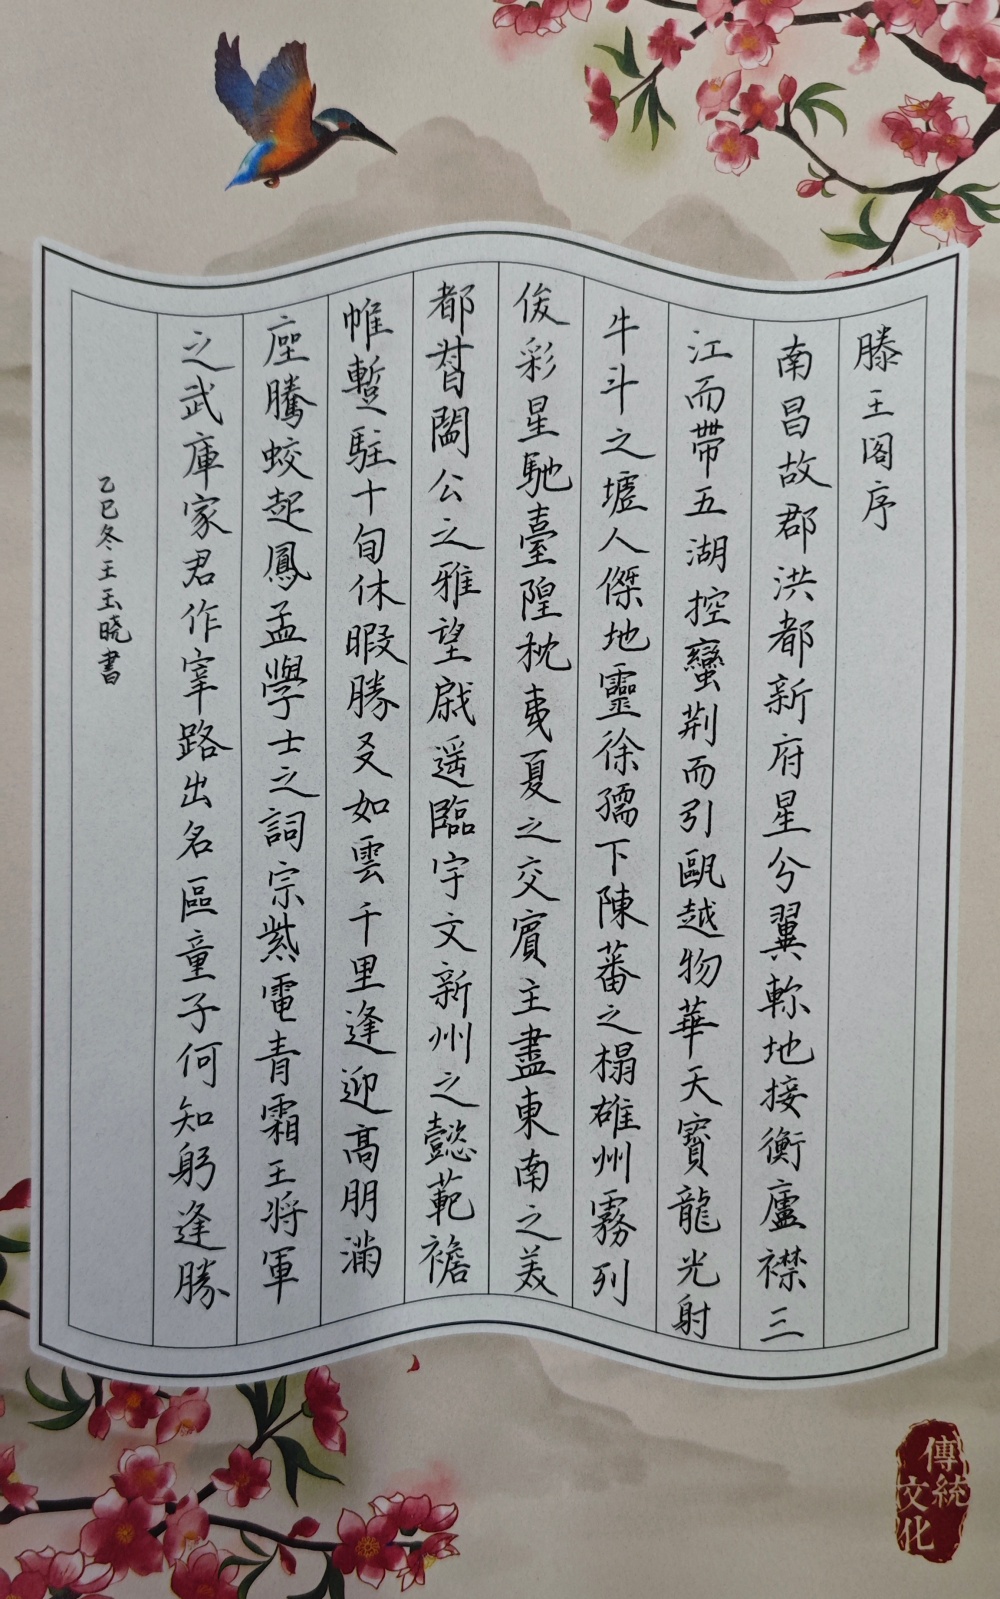 滕王阁序
南昌故郡洪都新府星兮翼軫地接衡廬襟三
江而帶五湖控蠻荆而引甌越物華天寶龍光射
牛斗之墟人傑地靈徐孺下陳蕃之榻雄州霧列
俊彩星馳臺隍枕夷夏之交賓主盡東南之美
都督閻公之雅望戚遥臨宇文新州之懿範襜
帷蹔駐十旬休暇勝友如雲千里逢迎高朋满
座騰蛟起鳳孟學士之詞宗紫電青霜王将軍
之武庫家君作宰路出名區童子何知躬逢勝
乙巳冬王玉晓書
傳統
文化